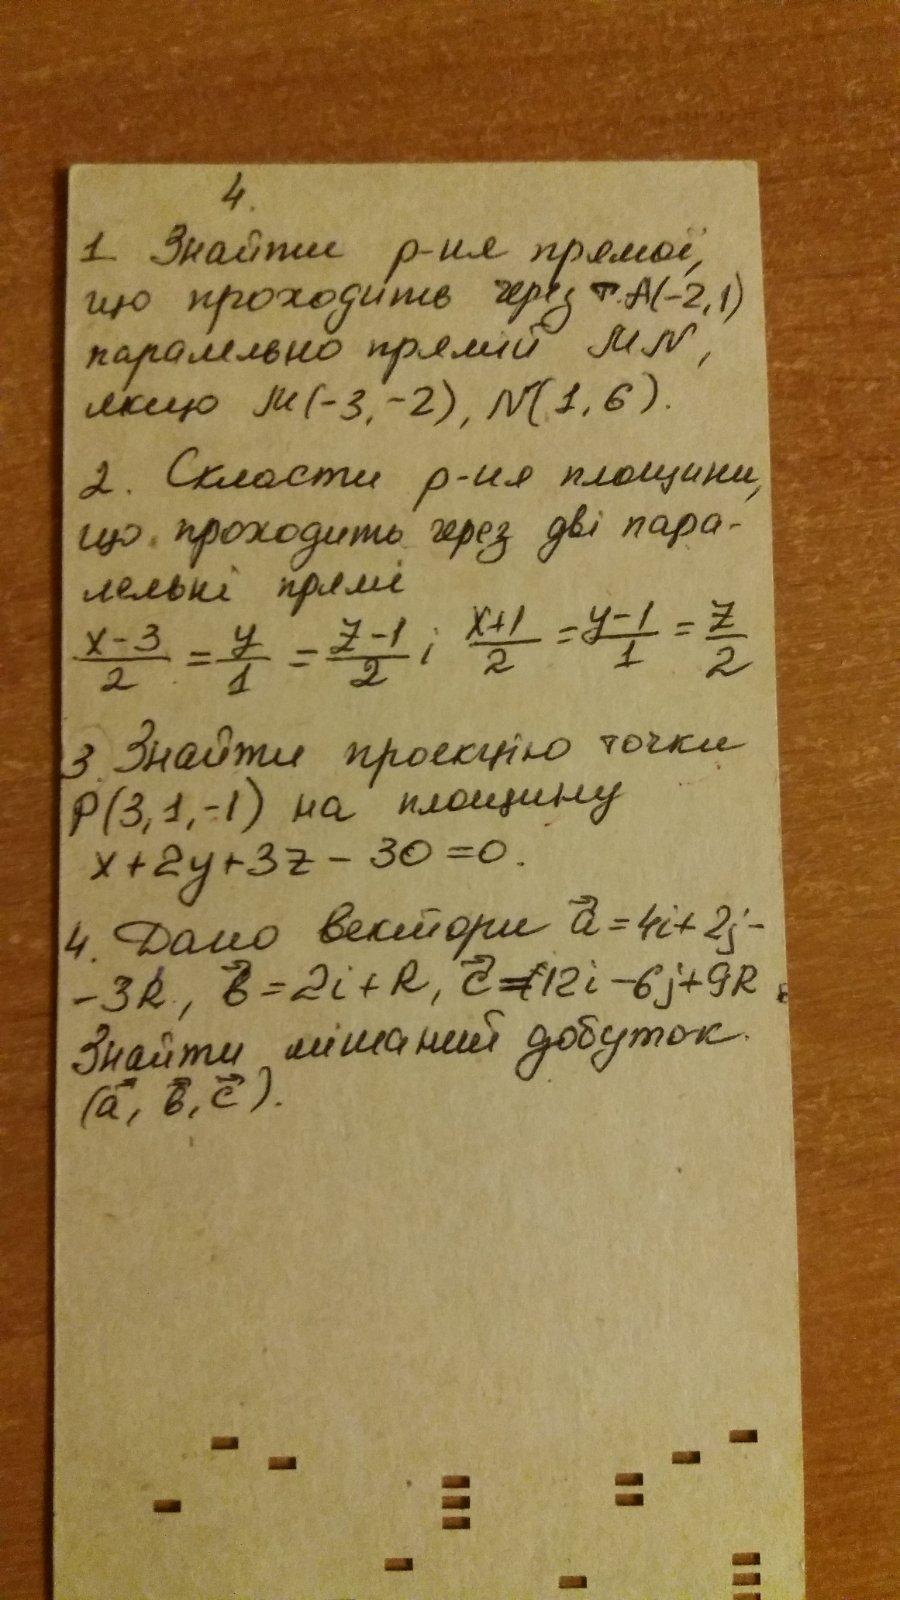 4.
1 Знайти р-ня прямої,
що проходить через т.А(-2,1)
паралельно прямій MN,
якщо M(-3,-2), N(1,6).
2. Скласти р-ня площини,
що проходить через дві пара-
лельні прямі
(x-3)/2 = y/1 = (z-1)/2 і (x+1)/2 = (y-1)/1 = z/2
3. Знайти проекцію точки
P(3,1,-1) на площину
x+2y+3z-30=0.
4. Дано вектори a⃗=4i+2j-
-3k, b⃗=2i+k, c⃗=12i-6j+9k.
Знайти мішаний добуток
(a⃗, b⃗, c⃗).